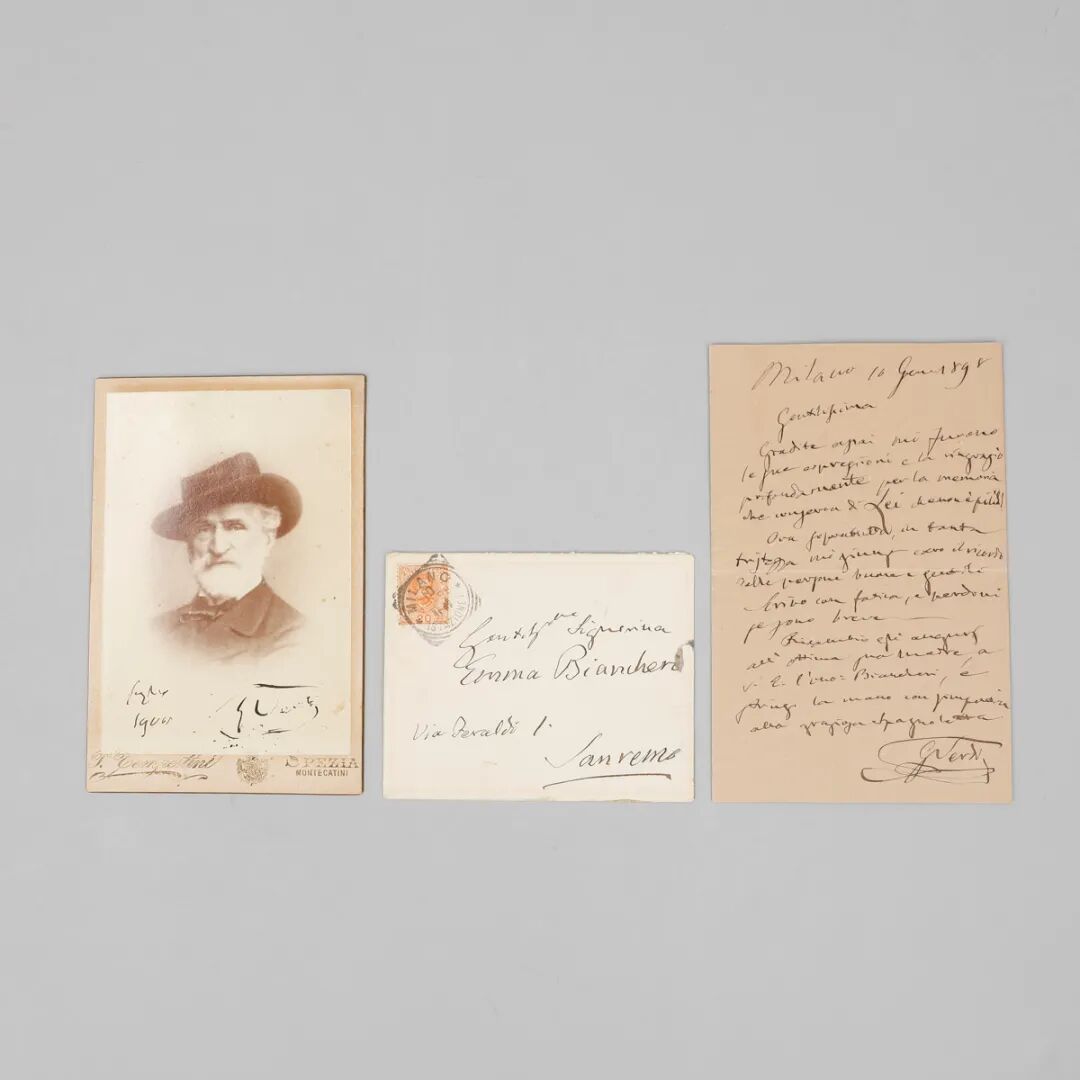 Luglio
1900
G Verdi
SPEZIA
MONTECATINI
MILANO
Signorina
Emma Biancheri
Via Feraldi 1.
Sanremo
Milano 10 Genn 1898
Gentilissima
Gradite assai mi furono
le sue espressioni e la ringrazio
profondamente per la memoria
che conserva di Lei
Ora soprattutto, in tanta
tristezza mi giunge caro il ricordo
delle persone buone e gentili
Scrivo con fatica, e perdoni
se sono breve
Ricambio gli auguri
all'ottima sua Madre a
S. E. l'ono: Biancheri, e
stringo la mano con simpatia
alla graziosa Spagnoletta
G Verdi